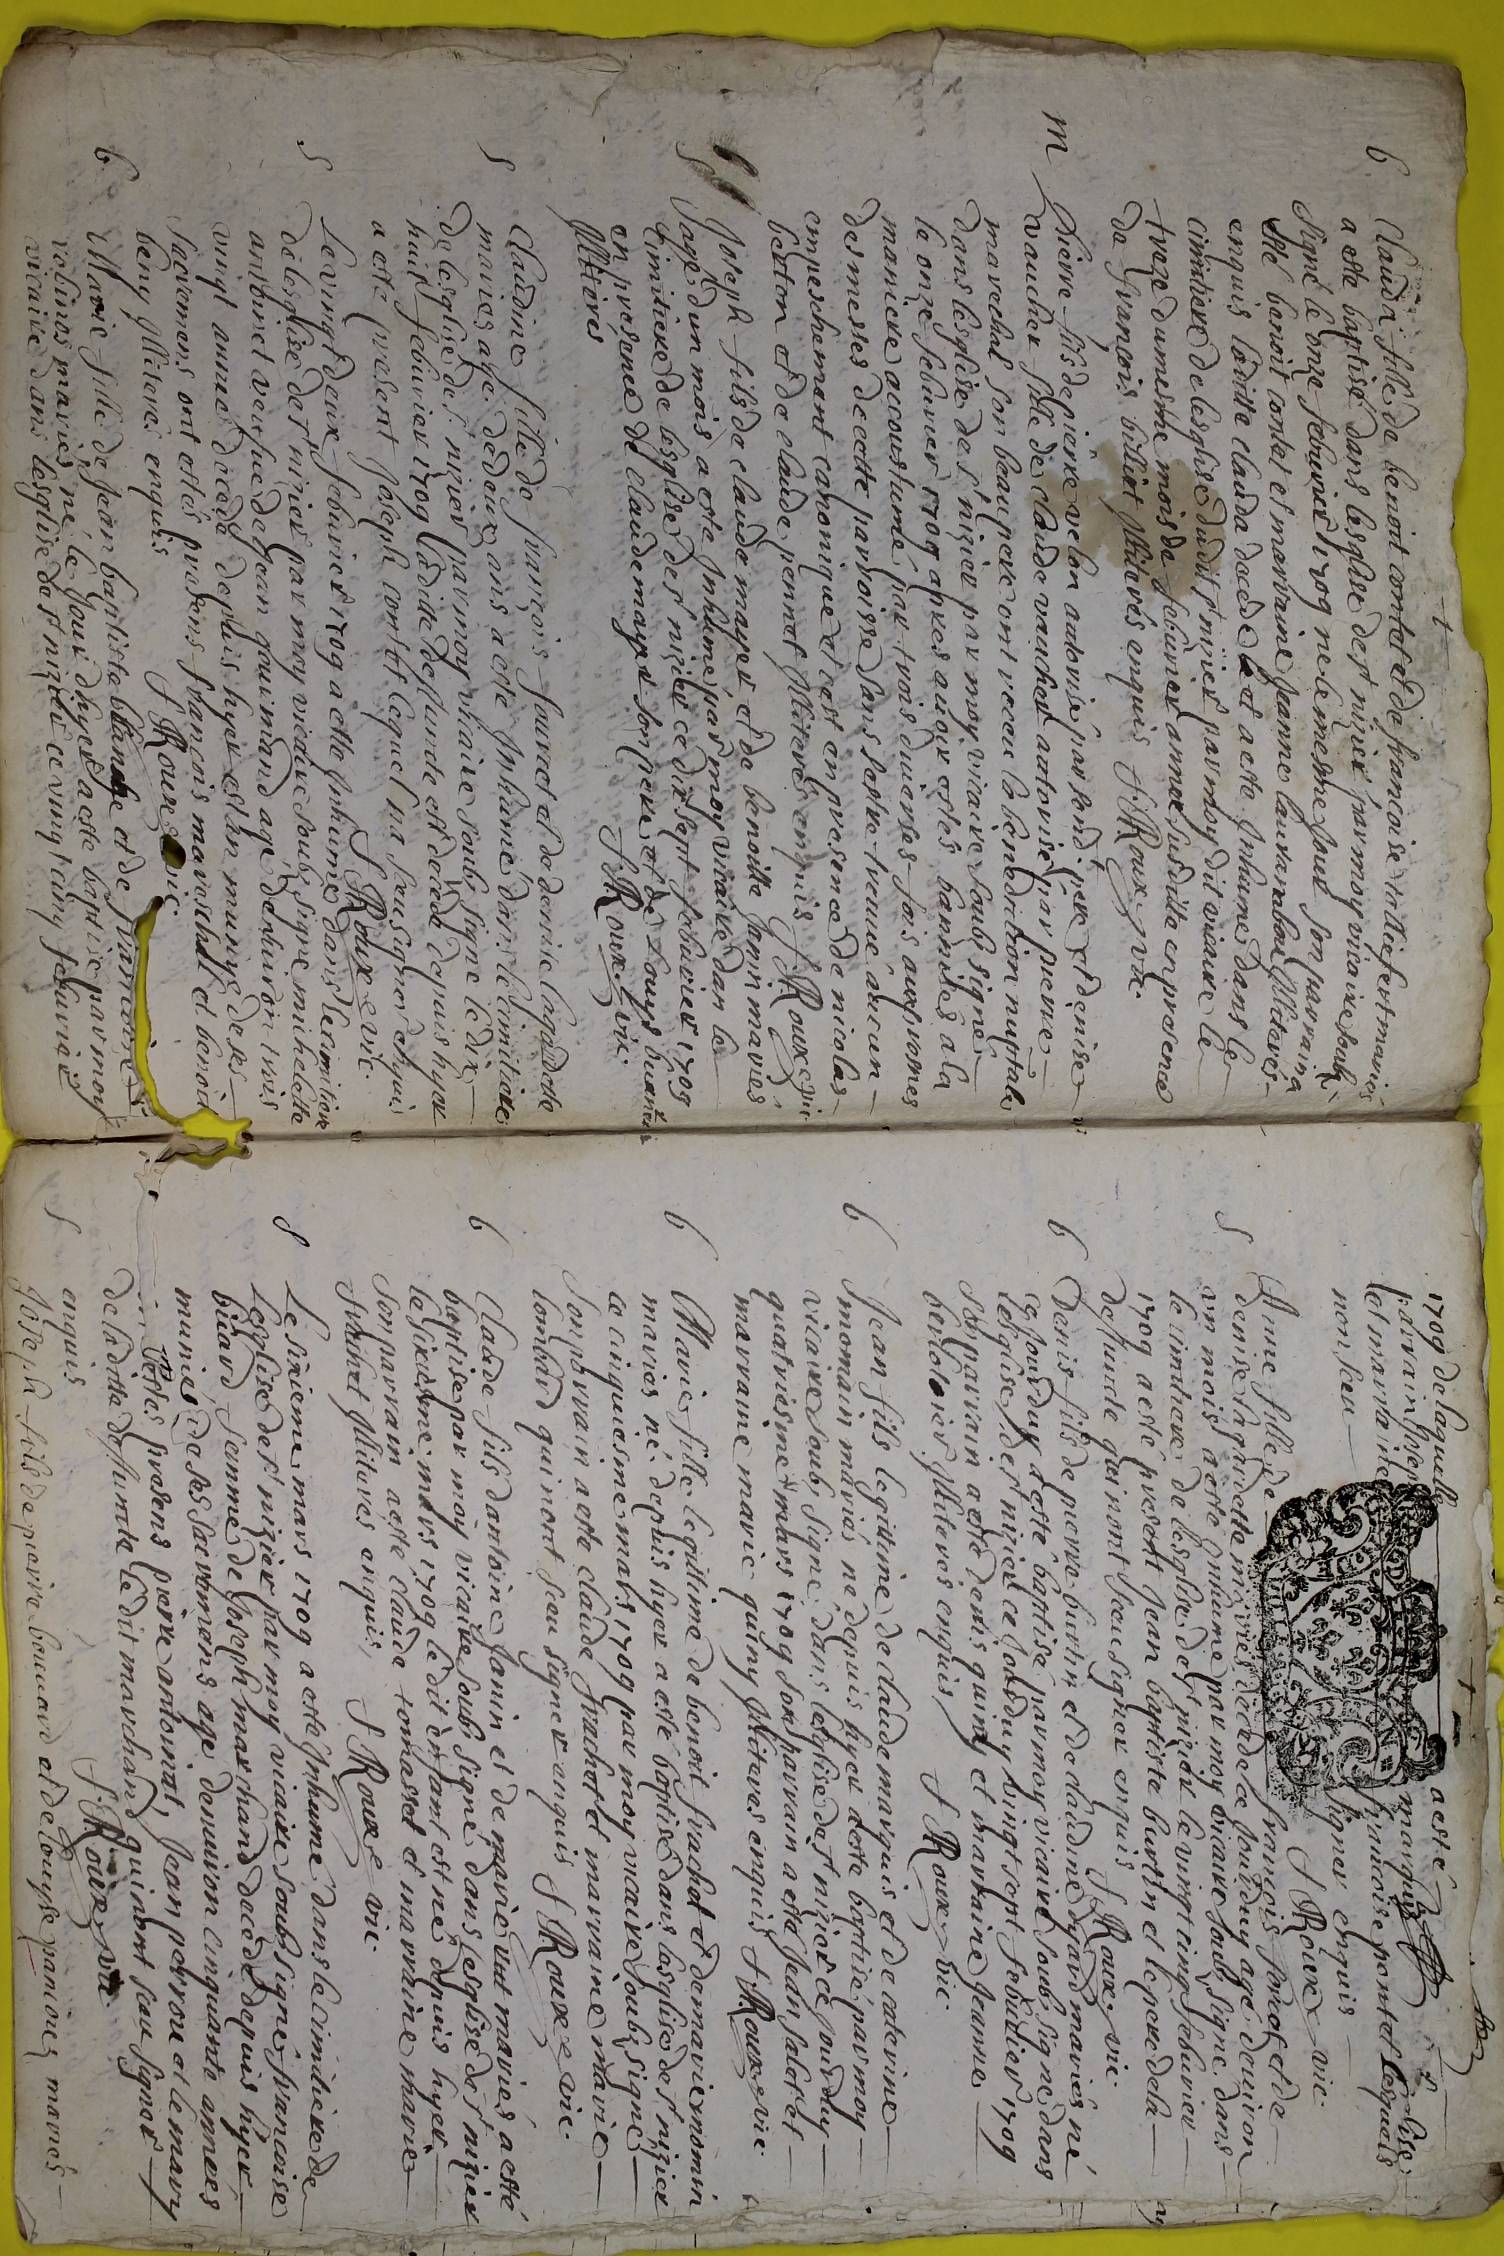 b Clauda fille de benoit contet et de francoise talliefert mariés
a este baptisé dans lesglise de st nizier par moy vicaire soub
signé le onze febvrier 1709 ne le mesme jour son parrain a
esté benoit contet et marraine jeanne illiterés
enquis laditte clauda decede et a este inhumes dans le
cimitiere de lesglise dudit st nizier par moy dit vicaire le
treze du mesme mois de febvrier annee susditte en presence
de francois billiet illiterés enquis f Roux vic.
m pierre fils de pierre velon authorisé par sondt pere et denise
vaucher fille de claude vaucher authorisé par pierre
marechal son beaupere ont receu la benediction nuptale
dans lesglise de st nizier par moy vicaire soubsigné
le onze febvrier 1709 apres avoir estés bannies a la
maniere accoustumé par trois diverses fois aux prones
des messes de cette parroisse sans sestre trouvé aucun
empeschemant canonique et cest en presence de nicolas
berton et de claude pennet illiterés enquis f Roux vic
S Joseph fils de claude mayet et de benoitte Janin mariés
agé dun mois a este inhumé par moy vicaire dans le
cimitiere de lesglise de st nizier ce dix sept febvrier 1709
en presence de claude mayet son pere et de Louys
illiterés f Roux vic.
S Claudine fille de francois favret et de denise lagardette
mariés agé de deux ans a este inhumé dans le cimitiere
de lesglise de st nizier par moy vicaire soubsigne le dix
huit febvrier 1709 ladicte deffunte est decede depuis hyer
a este present Joseph contet lequel na sceu signer enquis
f Roux vic.
S Le vingt deux febvrier 1709 a este inhumé dans le cimitiere
de lesglise de st nizier par moy vicaire soubsigne michelette
anthinet vefve de Jean guimand agé denviron trois
vingt années decede depuis hyer estan munys de ses
sacremens ont estés presens francois mareschal et benoit
beny illiterés enquis f Roux vic.
b Marie fille de Jean baptiste et de francoise
robinos mariés né le jour dhyer a este baptisé par moy
vicaire dans lesglise de st nizier ce vingt cinq febvrier
1709 de laquelle a esté
parrain Josep marquis
et marraine francoise pontet lesquels
non sceu signer enquis
f Roux vic.
S Anne fille de francois favret et de
denise lagardette mariés decede ce jourduy agé denviron
un mois a esté inhumé par moy vicaire soubsigne dans
le cimitiere de lesglise de st nizier le vingt cinq febvrier
1709 a este present Jean baptiste burtin et le pere de la
deffunte qui nont sceu signer enquis f Roux vic.
b Denis fils de pierre burtin et de claudine dyard mariés né
ce jourduy a esté baptisé par moy vicaire soubsigne dans
lesglise de st nizier ce jourduy vingt sept febvrier 1709
son parrain a este denis guiny et marraine Jeanne
bertolosier illiteres enquis f Roux vic.
b Jean fils legittime de claude marquis et de caterine
momain mariés ne depuis hyer a este baptisé par moy
vicaire soubsigné dans lesglise de st nizier ce jourduy
quatriesme mars 1709 son parrain a este Jean salet et
marraine marie guiny illiterés enquis f Roux vic.
b Marie fille legittime de benoit frachet et de marie momin
mariés né depuis hyer a esté baptisé dans lesglise de st nizier
ce cinquiesme mars 1709 par moy vicaire soubsigné
son parrain a este claude frachet et marraine marie
lombard qui nont sceu signer enquis f Roux vic.
b Claude fils dantoine Janin et de marie mariés a esté
baptisé par moy vicaire soubsigné dans lesglise de st nizier
le sixiesme mars 1709 ledit enfant est né depuis hyer
son parrain a este claude tomasset et marraine marie
frachet illiterés enquis f Roux vic.
S Le sixieme mars 1709 a este inhumé dans le cimitiere de
lesglise de st nizier par moy vicaire soubsigné francoise
bicard femme de Joseph marchand decede depuis hyer
munies de ses sacremens age denviron cinquante années
estes presens pierre antoinat, Jean perrose et le mary
de laditte deffuncte ledit marchand qui nont sceu signer
enquis f Roux vic.
S Joseph fils de pierre bouvard et de Louyse paniones mariés